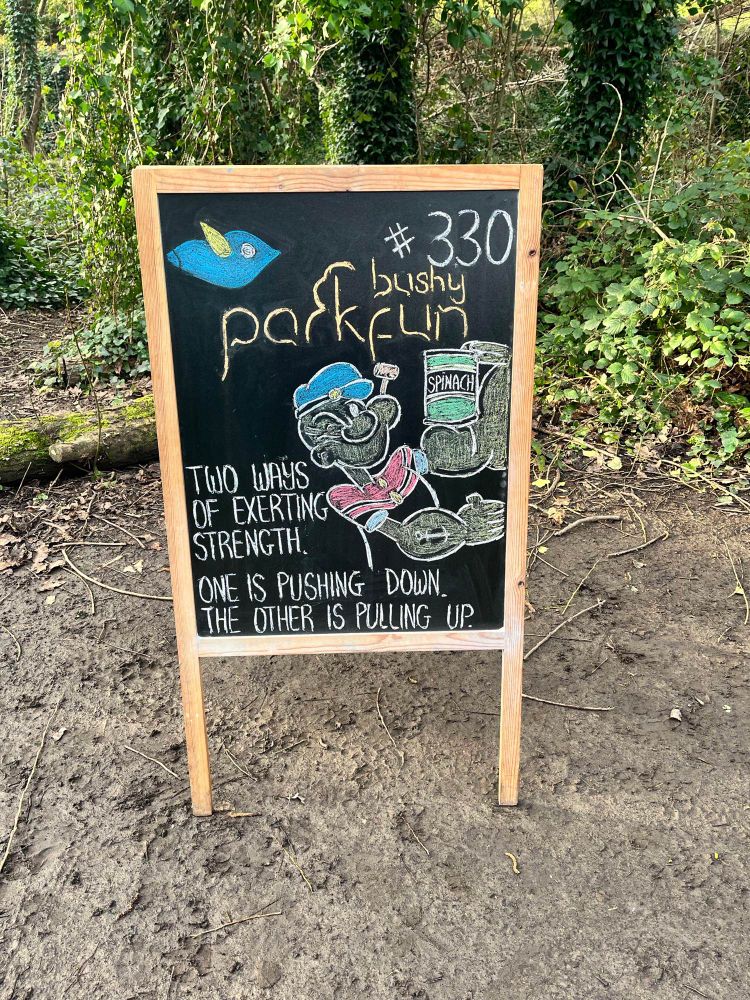 #330
bushy
parkfun
SPINACH
TWO WAYS
OF EXERTING
STRENGTH.
ONE IS PUSHING DOWN.
THE OTHER IS PULLING UP.